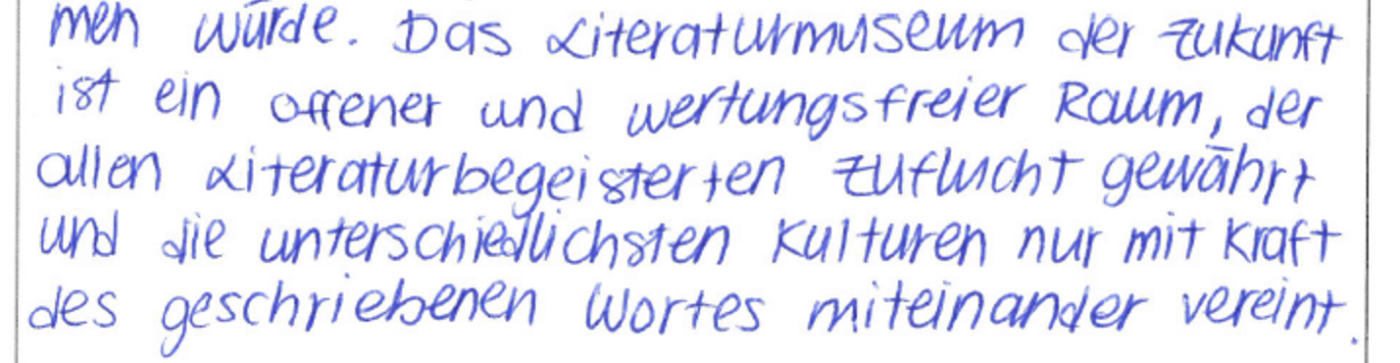 men würde. Das Literaturmuseum der Zukunft
ist ein offener und wertungsfreier Raum, der
allen Literaturbegeisterten Zuflucht gewährt
und die unterschiedlichsten Kulturen nur mit Kraft
des geschriebenen Wortes miteinander vereint.